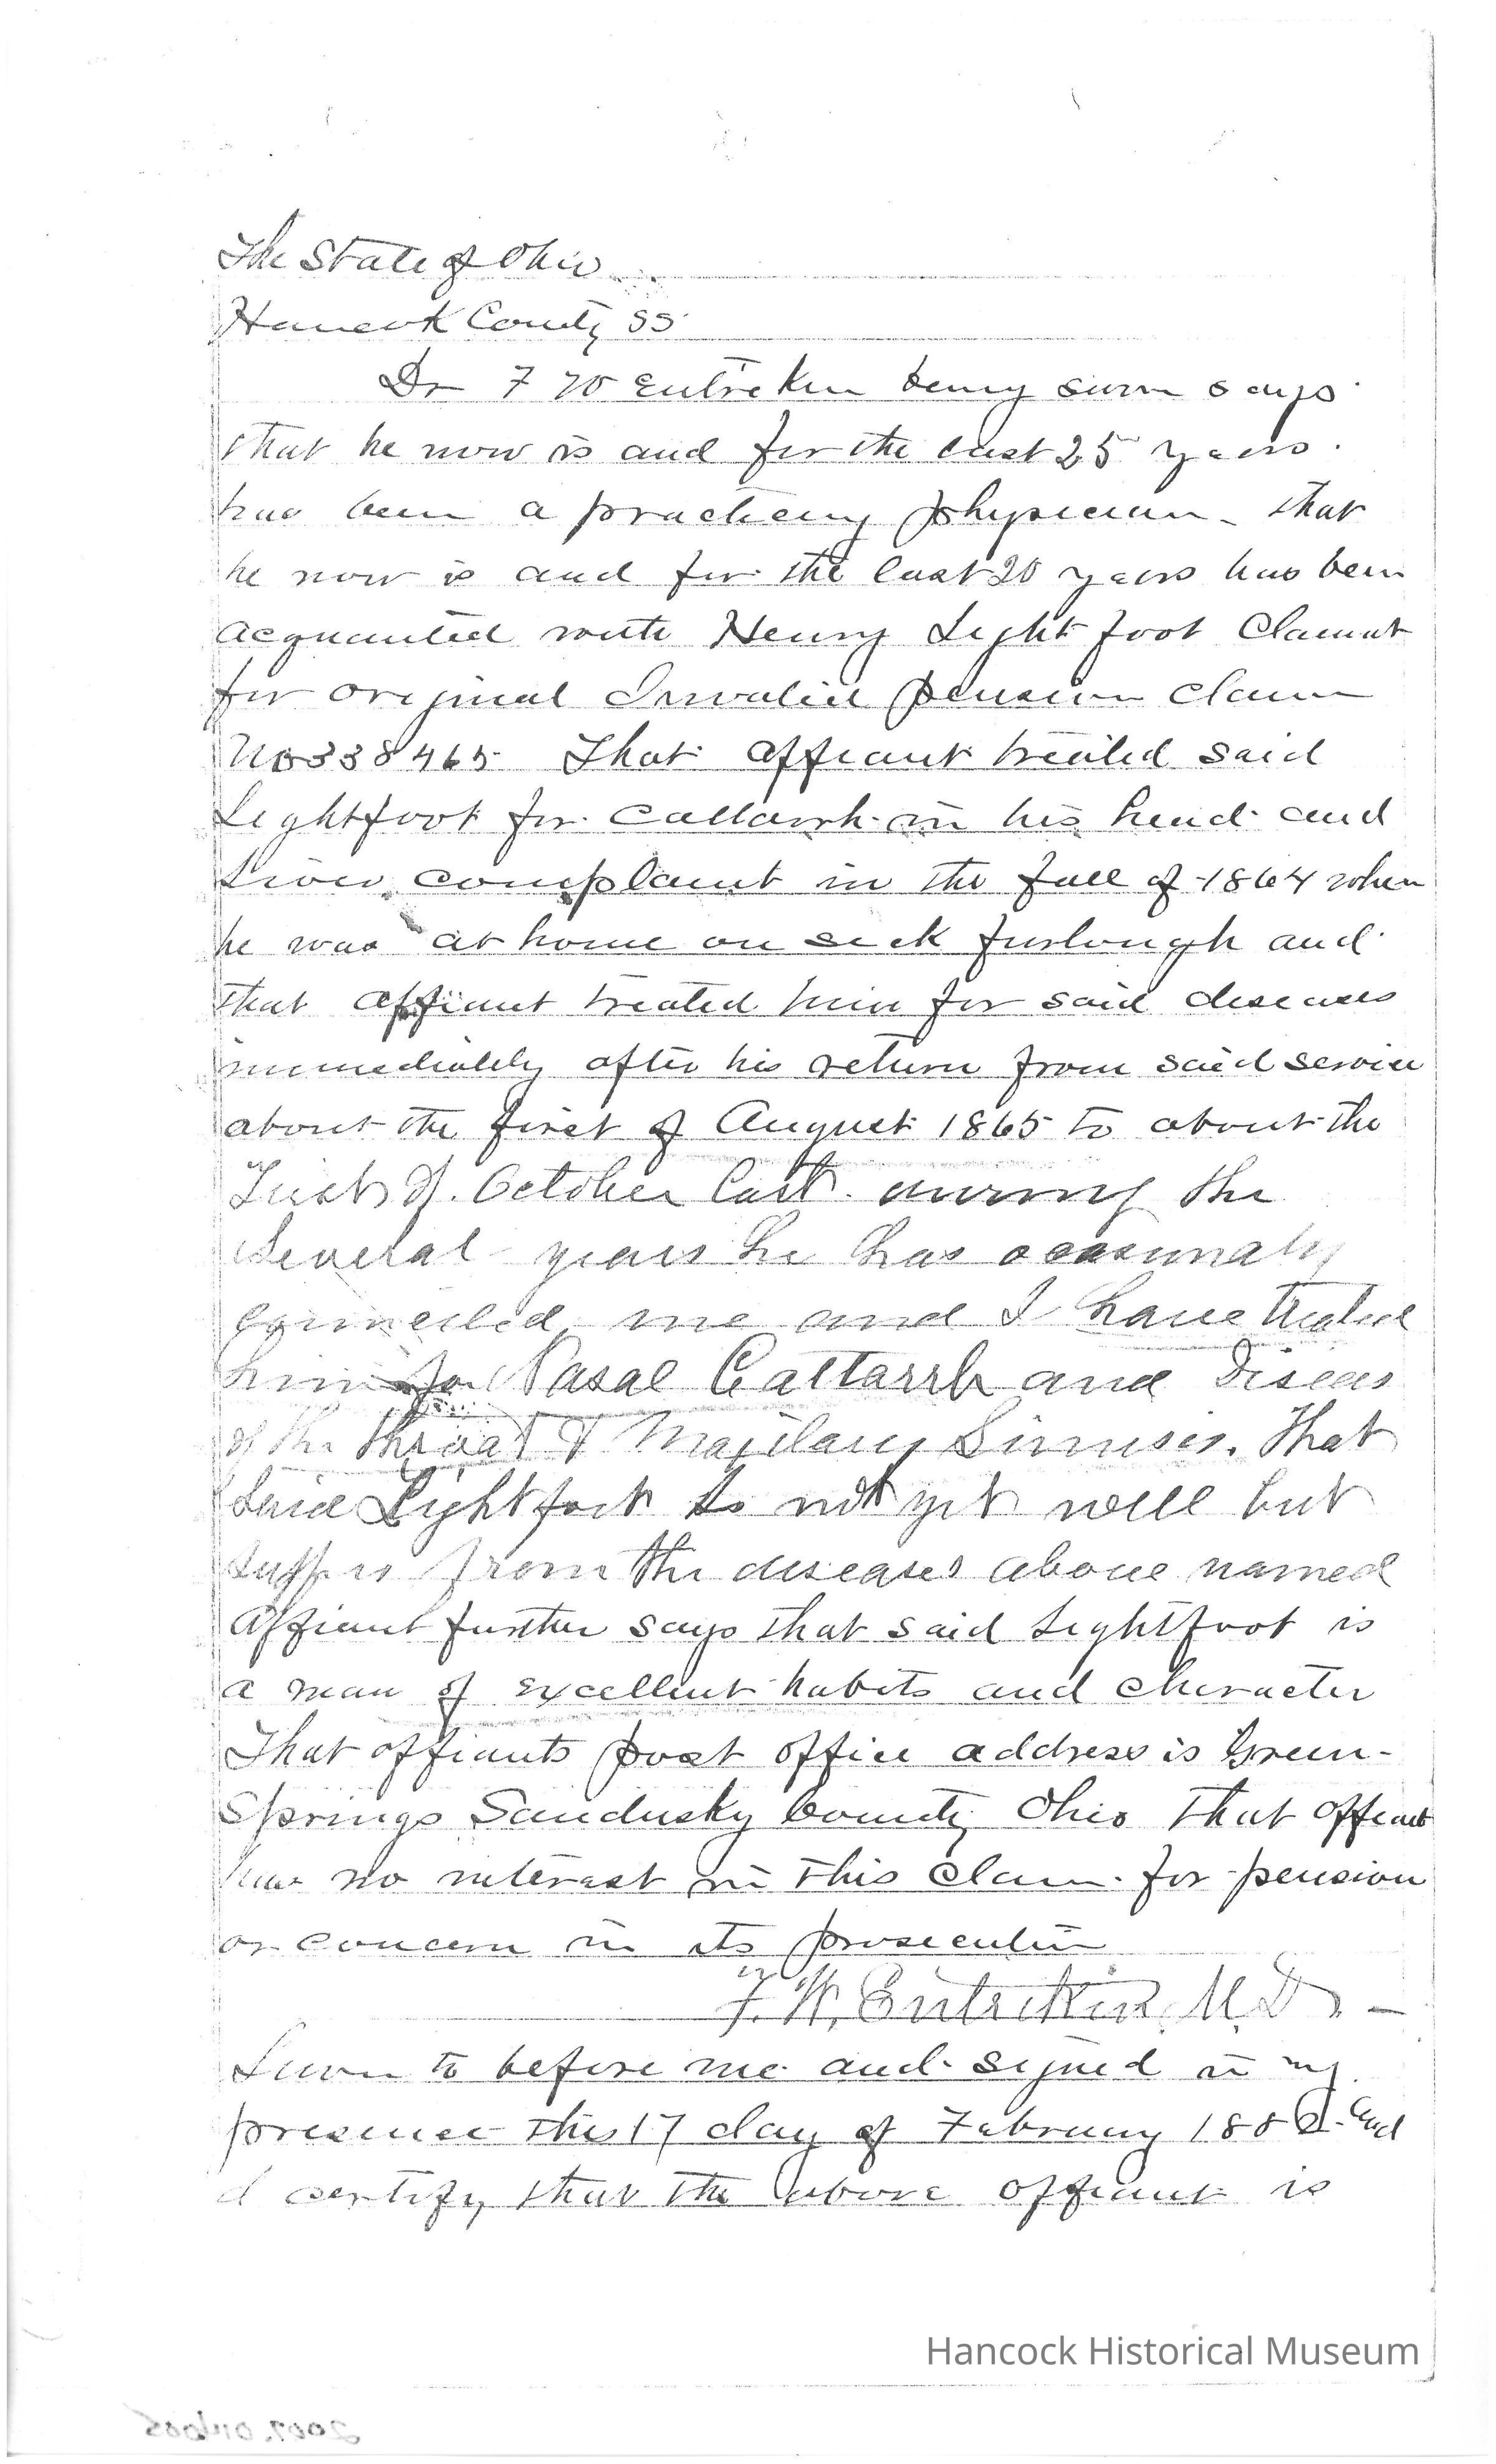 The State of Ohio
Hancock County SS
Dr F W Entreken being sworn says
that he now is and for the last 25 years
has been a practicing physician - that
he now is and for the last 20 years has been
acquainted with Henry Light foot Claimant
for original Invalid pension claim
No 338465 That affiant treated said
Lightfoot for Cattarrh in his head and
complaint in the fall of 1864 when
he was at home on sick furlough and
that affiant treated him for said diseases
immediately after his return from said service
about the first of August 1865 to about the
First of October last. during the
several years he has occasionaly
me and I have treated
him for Nasal Cattarrh and Diseas
of the throat & Maxilary Sinuses. That
Said Lightfoot is not yet well but
suffers from the diseases above named
Affiant further says that said Lightfoot is
a man of excellent habits and character
That affiants post office address is Green-
Springs Sandusky County Ohio That affiant
has no interest in this claim for pension
or concern in its prosecution
F. W. Entrikin, M.D. -
Sworn to before me and signed in my
presence this 17 day of February 1882 and
I certify that the above affiant is
Hancock Historical Museum